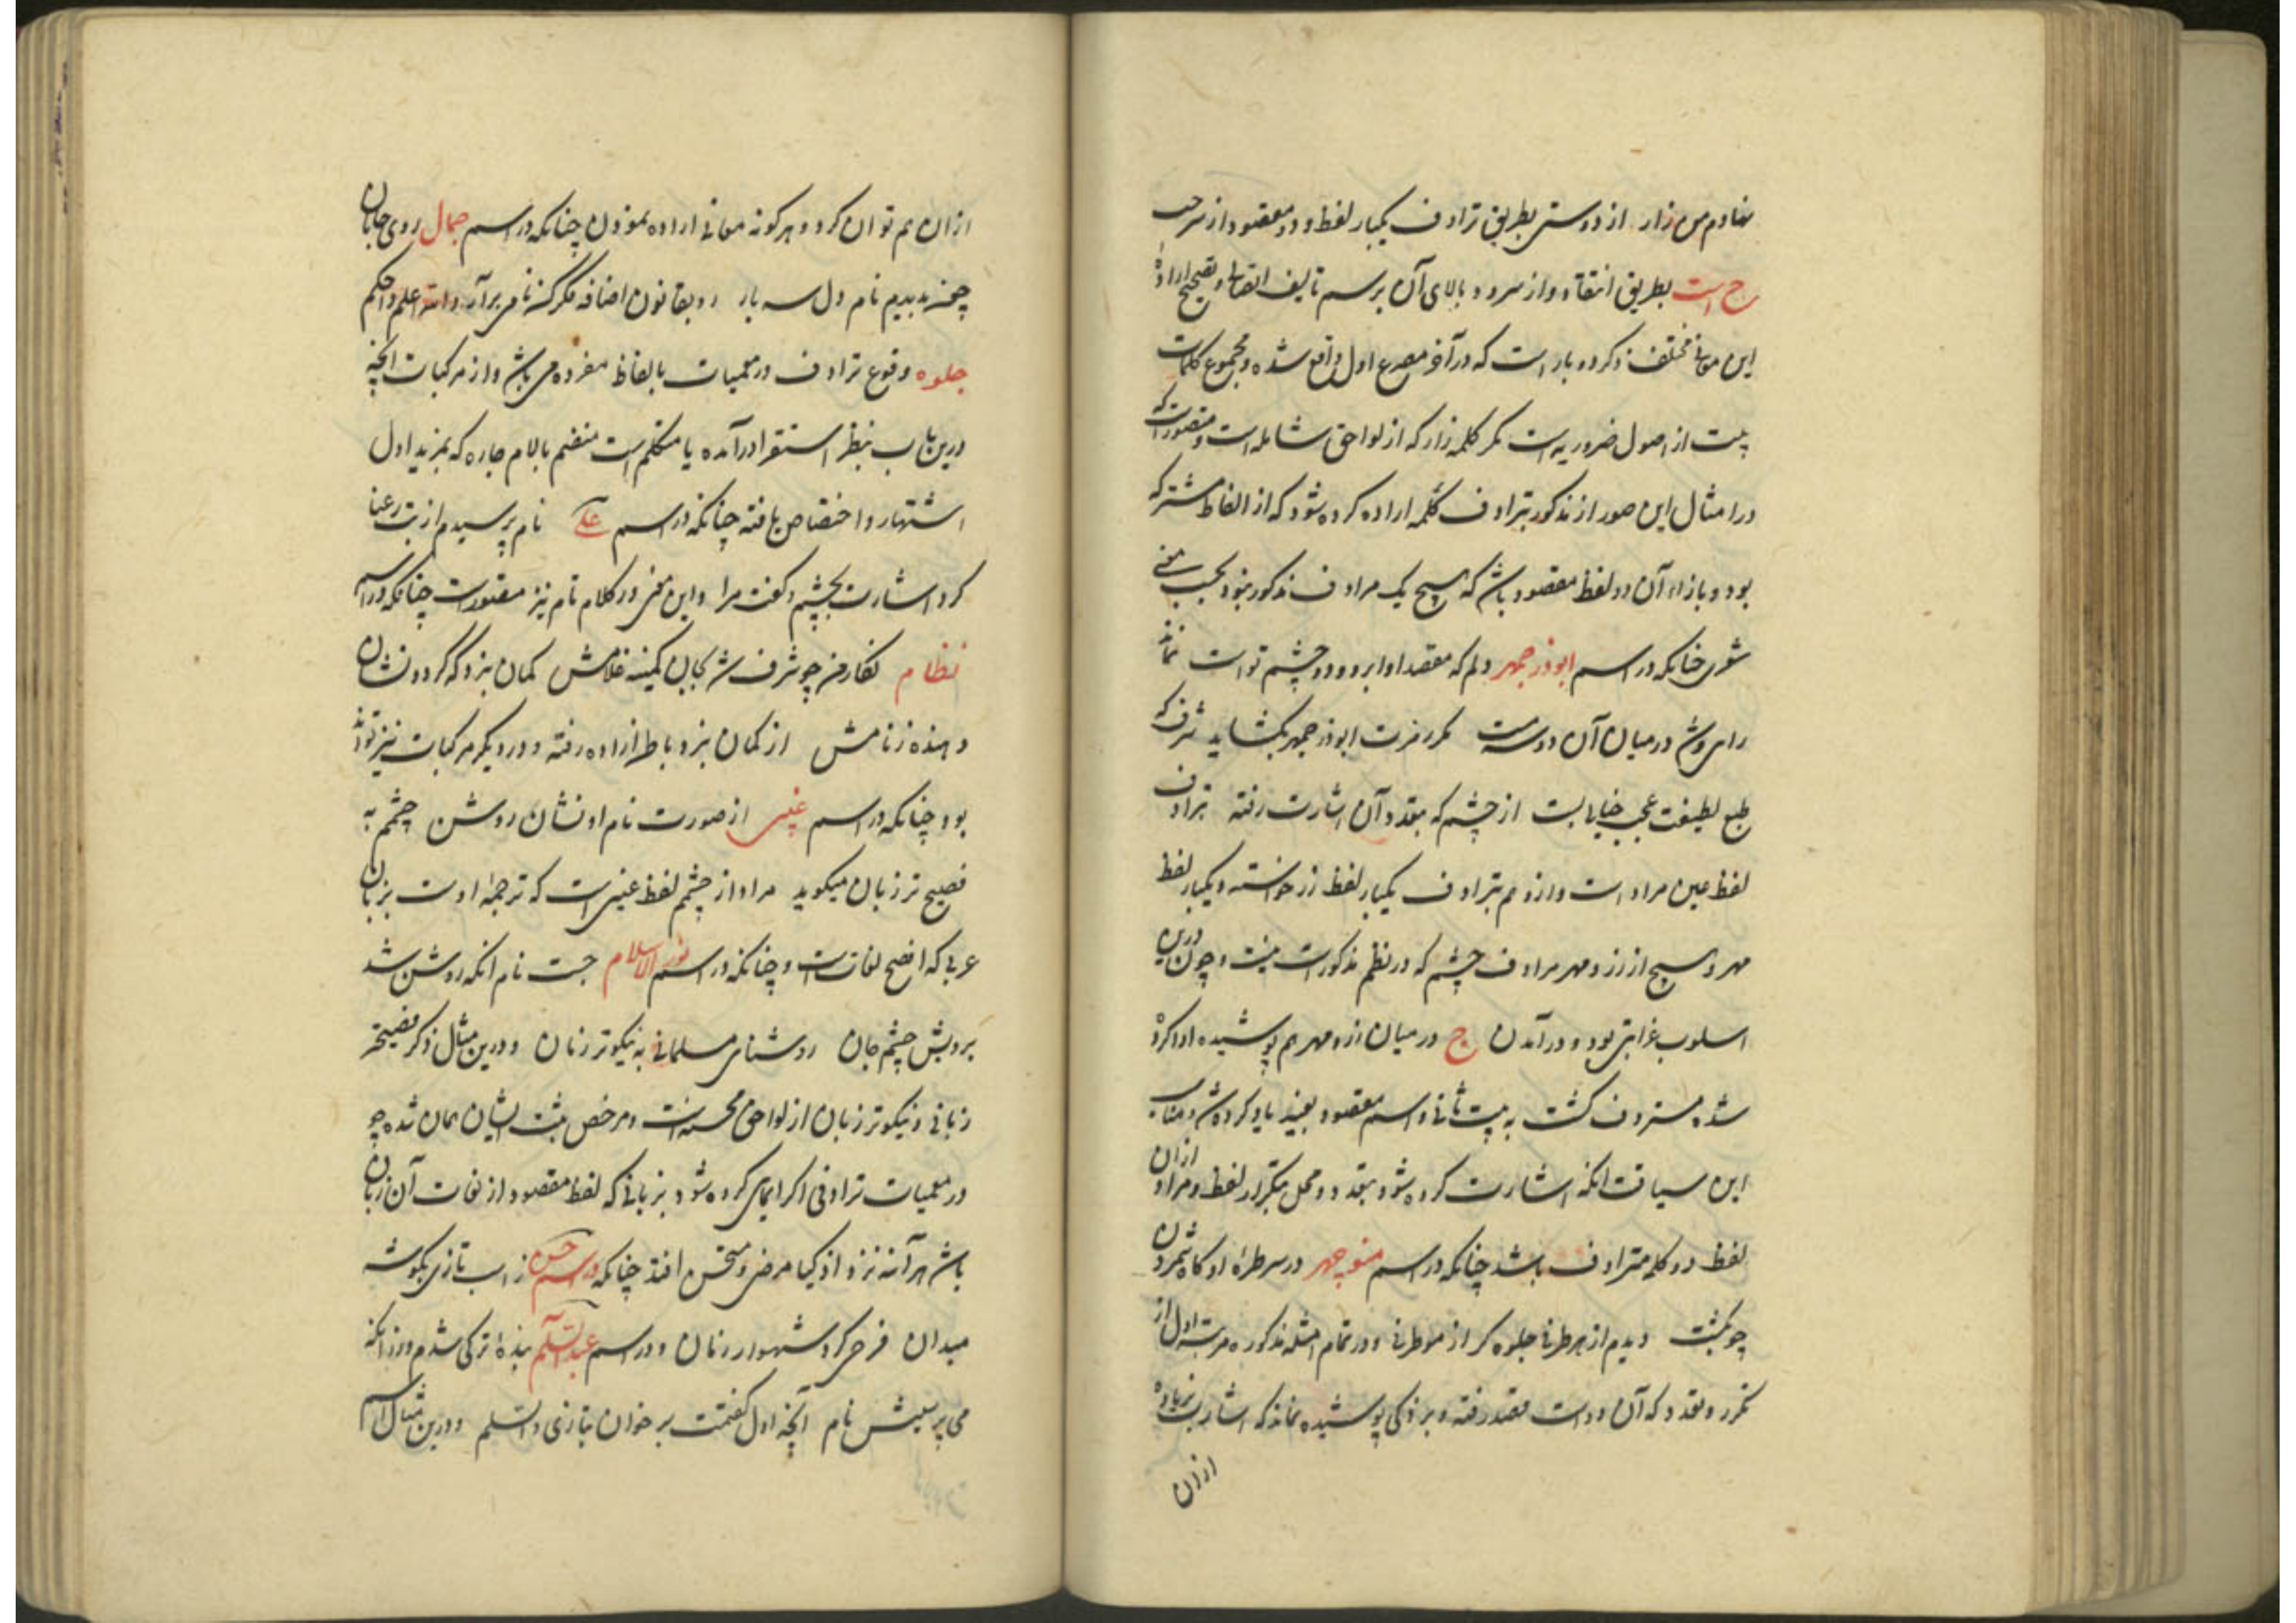 نهادم من زار از دوستی بطریق ترادف یکبار لفظ ود مقصود از سر حب
ح است بطریق انتقاد و از سرو د بالای آن برسم تالیف اتصالی و تصحیح اراده
این معانی مختلف ذکر دو بار است که در آخر مصرع اول واقع شده و مجموع کلمات
بیت از اصول ضروریه است مگر کلمه زار که از لواحق شامله است و متصورست که
در امثال این صور از مذکور بترادف کلمه اراده کرده شود که از الفاظ مشترکه
بود و بازاء آن دو لفظ مقصود باشد که هیچ یک مرادف مذکور نبود بحسب معنی
شعری چنانکه در اسم ابوذرجمهر دلم که مقصد او ابرو و دو چشم تو است
رای روشن در میان آن دو سر مست مکرر ابوذرجمهر بگشاید شرف که
طبع لطیفت عجب خیالیست از چشم که بتعدد آن اشارت رفته بترادف
لفظ عین مراد است و از و هم بترادف یکبار لفظ زر خواسته و یکبار لفظ
مهر و هیچ از زر و مهر مرادف چشم که در نظم مذکورست نیست و چون درین
اسلوب غرابتی بود و در آمدن ج در میان زر و مهر هم پوشیده ادا کرده
شد مستردف گشت به بیت ثانی و اسم مقصود بعینه یاد کرده شد و مناسب
این سیاقت انکه اشارت کرده شود بتعدد و محل تکرار لفظ و مراد ازان
لفظ دو کلمه مترادف باشد چنانکه در اسم منوچهر در سر طره او گاه شمردن
چو گشت دیدم از هر طرفی جلوه گر از مو طرفی و در تمام امثله مذکوره مرتبه اول از
تکرر و تعدد که آن دو است مقصد رفته و بر ذکی پوشیده نماند که اشارت بزیاده
ازان
ازان هم توان کرد و هر گونه معانی اراده نمودن چنانکه در اسم جمال روی جانان
چون بدیدم نام دل سه بار رو بقانون اضافه مکر کنه نامی برآر والله اعلم و احکم
جلوه وقوع ترادف در معمیات بالفاظ مفرده می باشد و از مرکبات آنچه
درین باب بنظر استقرا درآمده یا متکلم است منضم بالام جاره که بمزید اول
اشتهار و اختصاص یافته چنانکه در اسم علی نام پرسیدم از بت رعنا
کرد اشارت بچشم و گفت مرا و این معنی در کلام تام نیز متصورست چنانکه در اسم
نظام نگار من چو شرف شد بجان کمینه غلامش کمان بزد که گردد نشان
دهنده ز نامش از کمان بزد باطن اراده رفته و در دیگر مرکبات نیز تواند
بود چنانکه در اسم عیسی از صورت نام او نشان روشن چشمم به
فصیح تر زبان میگوید مراد از چشم لفظ عین است که ترجمه اوست بزبان
عربی که افصح لغات است و چنانکه در اسم نور الاسلام جست نام انکه روشن شد
برویش چشم جان روشنای مسلمانی به نیکوتر زبان و درین مثال ذکر فصیحتر
زبانی و نیکوتر زبان از لواحق محسنه است و مرخص بیت ایشان همان شده چو
در معمیات ترادفی اگر ایمای کرده شود بزبانی که لفظ مقصود از لغات آن زبان
باشد هر آینه نزد اذکیا مرضی و مستحسن افتد چنانکه در اسم حسن ز اسب تازی بگوشه
میدان فرحی کرد شهسوار زنان و در اسم عبدالسلام بنده ترکی شدم ورزانکه
می پرسیش نام آنچه اول گفتمت بر خوان بتازی والسلم و درین مثال اسم